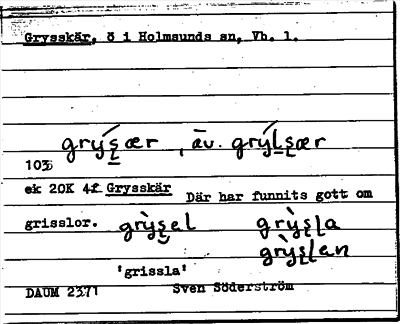 Grysskär, ö i Holmsunds sn, Vb. l.
grýs̲ær , äv. grýl̲sær
103
ek 20K 4f Grysskär Där har funnits gott om
grisslor. grỳsel grỳsla
grỳslan
'grissla'
DAUM 2371 Sven Söderström